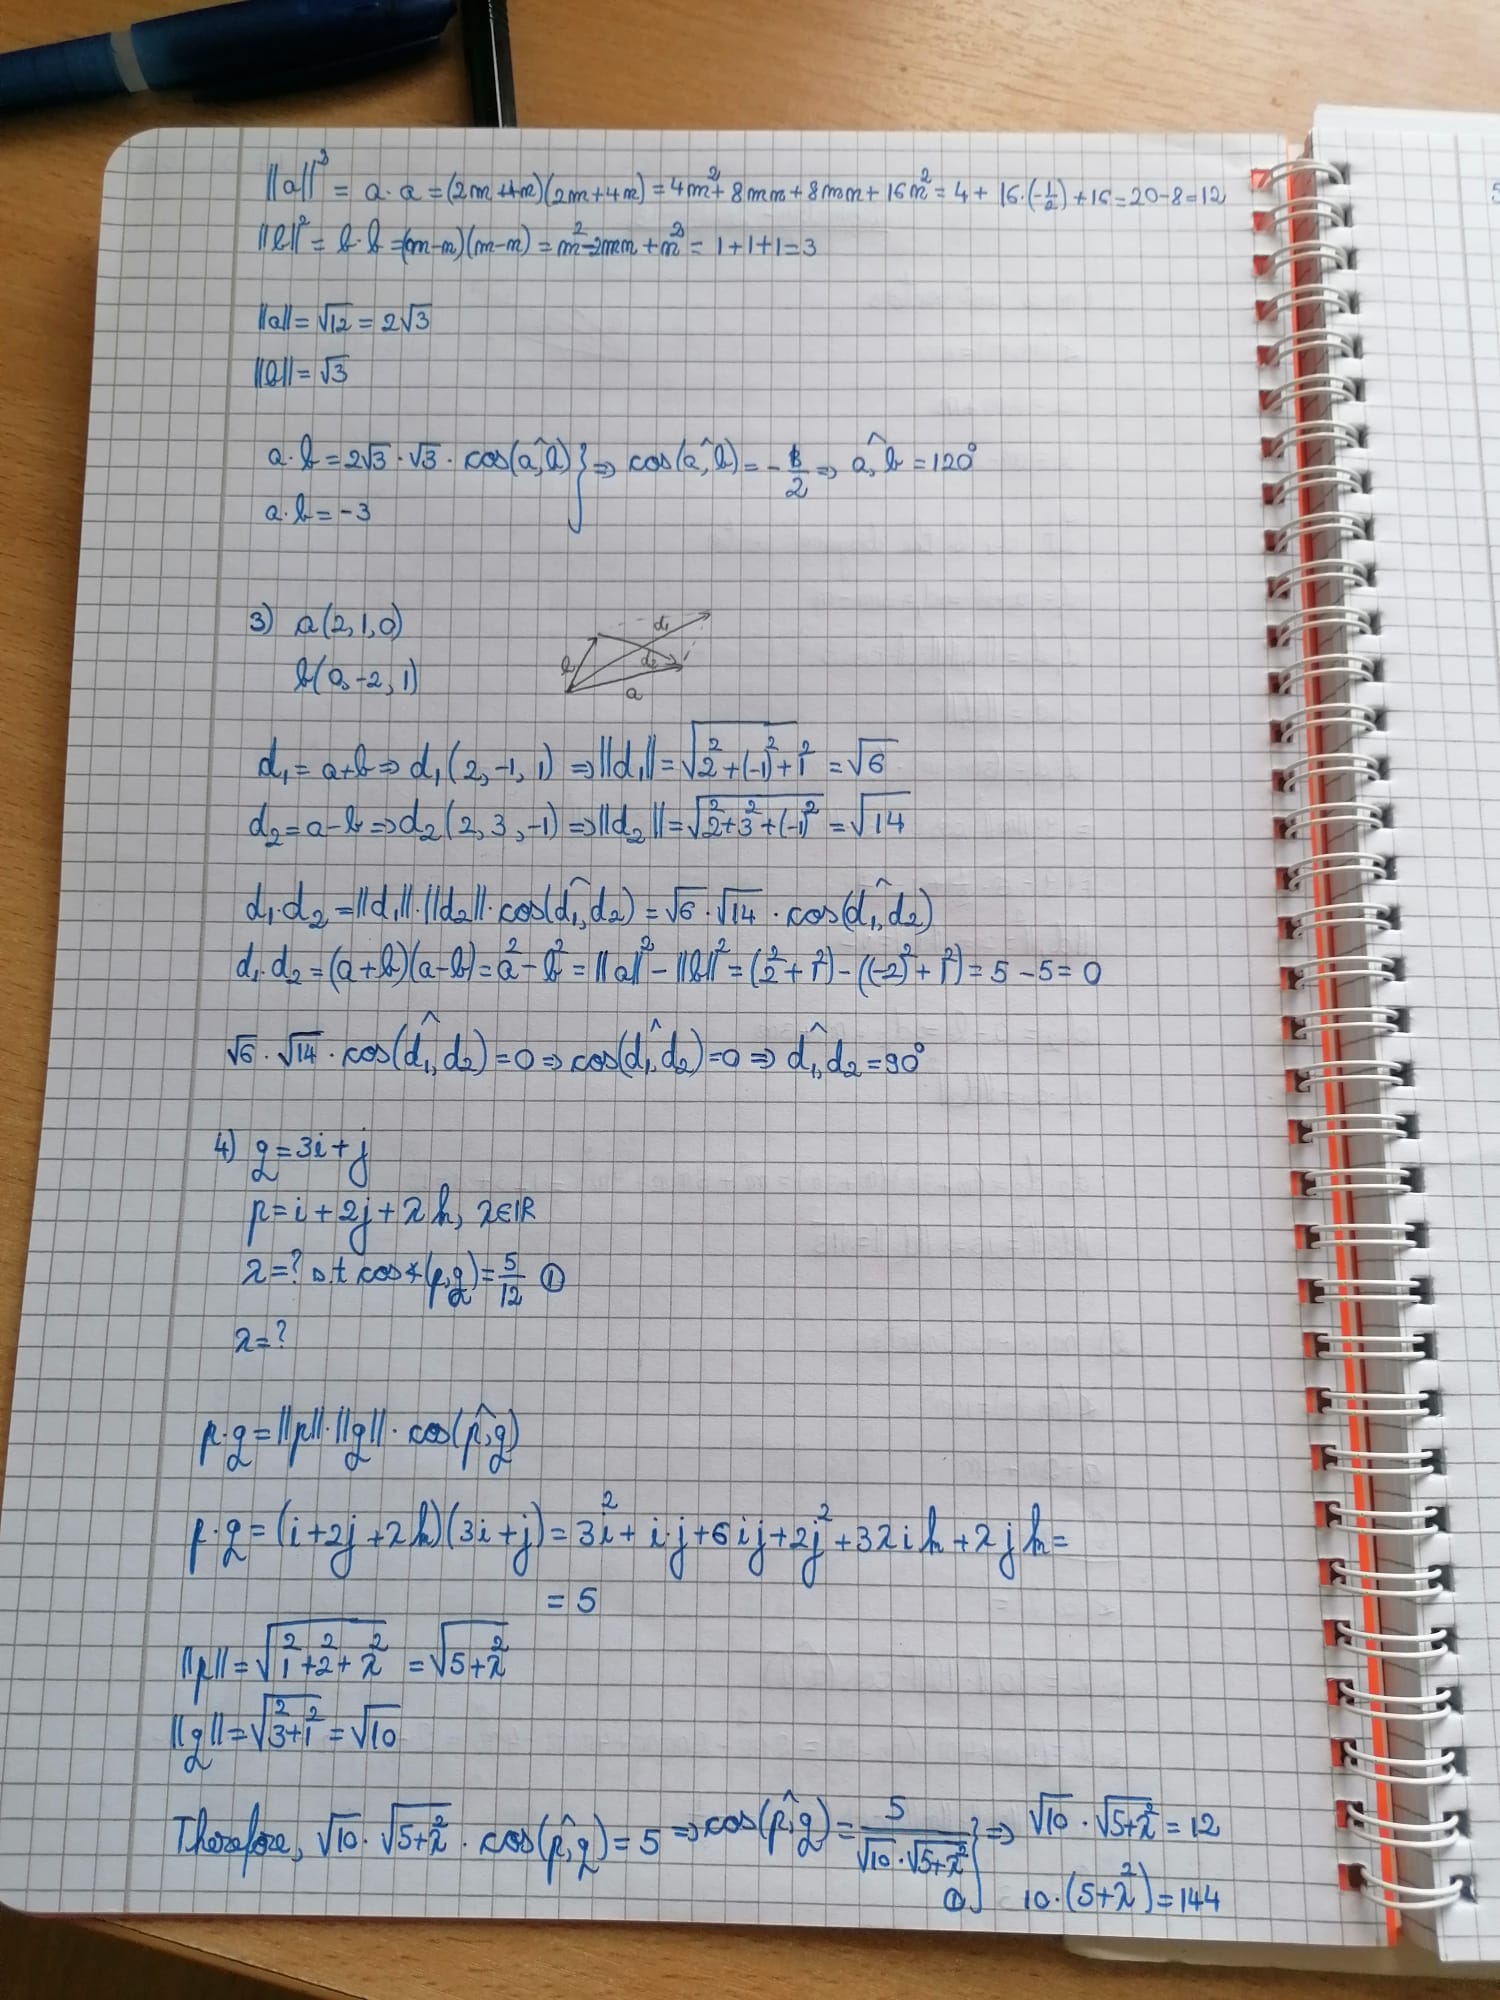 ||a||² = a·a = (2m+4n)(2m+4n) = 4m²+8mn+8mn+16n² = 4+16·(-1/2)+16=20-8=12
||b||² = b·b = (m-n)(m-n) = m²-2mn+n² = 1+1+1=3
||a||=√12 = 2√3
||b||=√3
a·b=2√3·√3·cos(a,b) } ⇒ cos(a,b)=-1/2 ⇒ a,b=120°
a·b=-3
3) a(2,1,0)
b(0,-2,1)
d₁
b
d₂
a
d₁=a+b⇒d₁(2,-1,1) ⇒||d₁||=√2²+(-1)²+1² =√6
d₂=a-b⇒d₂(2,3,-1)⇒||d₂||=√2²+3²+(-1)² =√14
d₁·d₂=||d₁||·||d₂||·cos(d₁,d₂)=√6·√14·cos(d₁,d₂)
d₁·d₂=(a+b)(a-b)=a²-b²=||a||²-||b||²=(2²+1²)-((-2)²+1²)=5-5=0
√6·√14·cos(d₁,d₂)=0⇒cos(d₁,d₂)=0⇒d₁,d₂=90°
4) q=3i+j
p=i+2j+λk, λ∈ℝ
λ=? st cos∢(p,q)=5/12 ①
λ=?
p·q=||p||·||q||·cos(p,q)
p·q=(i+2j+λk)(3i+j)=3i²+i·j+6ij+2j²+3λik+λjk=
=5
||p||=√1²+2²+λ² =√5+λ²
||q||=√3²+1² =√10
Therefore, √10·√5+λ²·cos(p,q)=5⇒cos(p,q)=5/√10·√5+λ² } ⇒ √10·√5+λ²=12
① 10·(5+λ²)=144